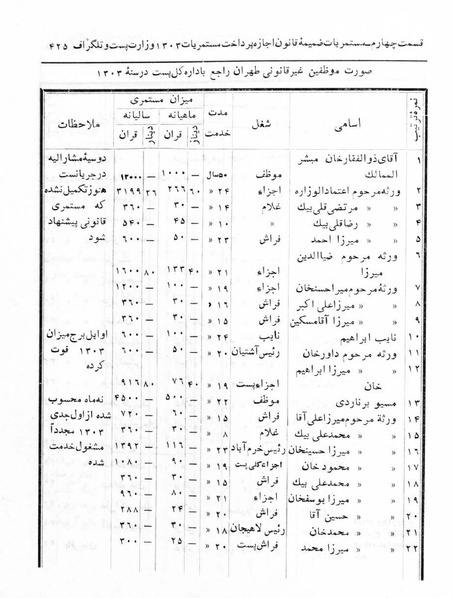 قسمت چهارم ــ مستمریات ضمیمهٔ قانون اجازه پرداخت مستمریات ۱۳۰۳ وزارت پست و تلگراف ۴۲۵
صورت موظفین غیرقانونی طهران راجع باداره کل پست درسنهٔ ۱۳۰۳
نمره ترتیب اسامی شغل مدت خدمت میزان مستمری ملاحظات
ماهیانه سالیانه
قران دینار قران دینار
۱ آقای ذوالفقارخان مبشر الممالک موظف ۵۰ سال ۱۰۰۰ — ۱۲۰۰۰ — دوسیهٔ مشارالیه درجریانست
۲ ورثه مرحوم اعتمادالوزاره اجزاء ۲۴ « ۲۶۶ ۶۰ ۳۱۹۹ ۲۶ هنوز تکمیل نشده
۳ « « مرتضی قلی بیك غلام ۱۴ « ۳۰ — ۳۶۰ — که مستمری
۴ « « رضاقلی بیك « ۱۰ « ۴۵ — ۵۴۰ — قانونی پیشنهاد
۵ « « میرزا احمد فراش ۲۳ « ۵۰ — ۶۰۰ — شود
۶ ورثه مرحوم ضیاالدین
میرزا اجزاء ۲۱ « ۱۳۳ ۴۰ ۱۶۰۰ ۸۰
۷ ورثهٔ مرحوم میراحسنخان اجزاء ۱۹ « ۱۰۰ — ۱۲۰۰ —
۸ « « میرزا علی اکبر فراش ۱۶ « ۳۰ — ۳۶۰ —
۹ « « میرزا آقامسکین فراش ۱۵ « ۳۰ — ۳۶۰ —
۱۰ نایب ابراهیم نایب ۲۴ « ۱۰۰ — ۶۰۰ — اوایل برج میزان
۱۱ ورثه مرحوم داورخان رئیس آشتیان ۲۰ « ۵۰ — ۶۰۰ — ۱۳۰۳ فوت
۱۲ « « میرزا ابراهیم کرده
خان اجزاء پست ۱۹ « ۷۶ ۴۰ ۹۱۶ ۸۰
۱۳ مسیو برناردی موظف ۲۲ « ۵۰۰ — ۴۵۰۰ — نه ماه محسوب
۱۴ ورثهٔ مرحوم میرزاعلی آقا فراش ۱۵ « ۶۰ — ۷۲۰ — شده از اول جدی
۱۵ « « محمدعلی بیك غلام ۸ « ۳۰ — ۳۶۰ — ۱۳۰۳ مجدداً
۱۶ « « میرزا حسینخان رئیس خرم آباد ۲۳ « ۱۱۶ — ۱۳۹۲ — مشغول خدمت
۱۷ « « محمودخان اجزاء کلی پست ۱۹ « ۹۰ — ۱۰۸۰ — شده
۱۸ « « محمدعلی بیك فراش ۱۵ « ۳۰ — ۳۶۰ —
۱۹ « « میرزا یوسفخان اجزاء ۲۱ « ۸۰ — ۹۶۰ —
۲۰ « « حسین آقا فراش ۲۰ « ۲۴ — ۲۸۸ —
۲۱ « « محمدخان رئیس لاهیجان ۱۸ « ۳۰ — ۳۶۰ —
۲۲ « « میرزا محمد فراش پست ۲۰ « ۲۵ — ۳۰۰ —